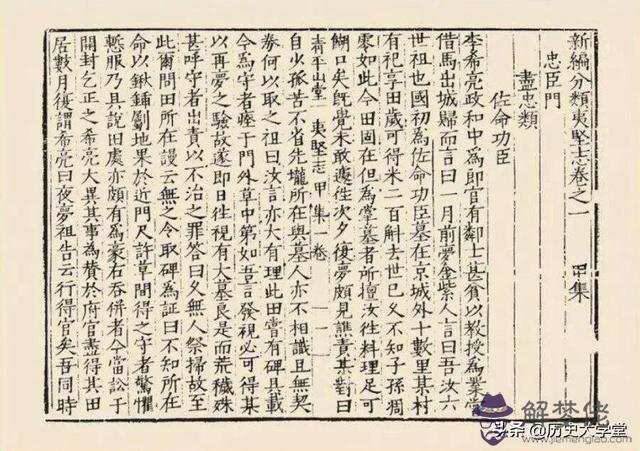 新編分類夷堅志卷之一　甲集
忠臣門
盡忠類
佐命功臣
李希亮政和中為郎官有鄰士甚貧以教授為業嘗
借馬出城歸而言曰一月前夢金紫人言曰吾汝六
世祖也國初為佐命功臣墓在京城外十數里某村
有祀享田歲可得米二百斛去世已久不知子孫凋
零如此今田固在但為掌墓者所擅汝往料理足可
餬口矣既覺未敢遽往次夕復夢頗見譙責其對曰
青平山堂　夷堅志　甲集一卷　一
自少孤苦不省先壠所在與墓人亦不相識且無契
券何以取之祖曰汝言亦大有理此田嘗有碑具載
今為守者瘞于門外草中第如吾言發視必可得某
以再夢之驗故遂即日往視有大墓良是而荒穢殊
甚呼守者出責以不治之罪答曰久無人祭掃故至
此爾問田所在謾云無之令取碑為証曰不知所在
命以鍬鍤劚地果於近門尺許草間得之守者驚懼
慙服乃具說田處亦頗有為豪右吞併者今當訟于
開封乞正之希亮大異其事為贊於府官盡得其田
居數月復謂希亮曰夜夢祖告云行得官矣吾同時
解梦佬
www.jiemenglao.com
头条 @历史大学堂